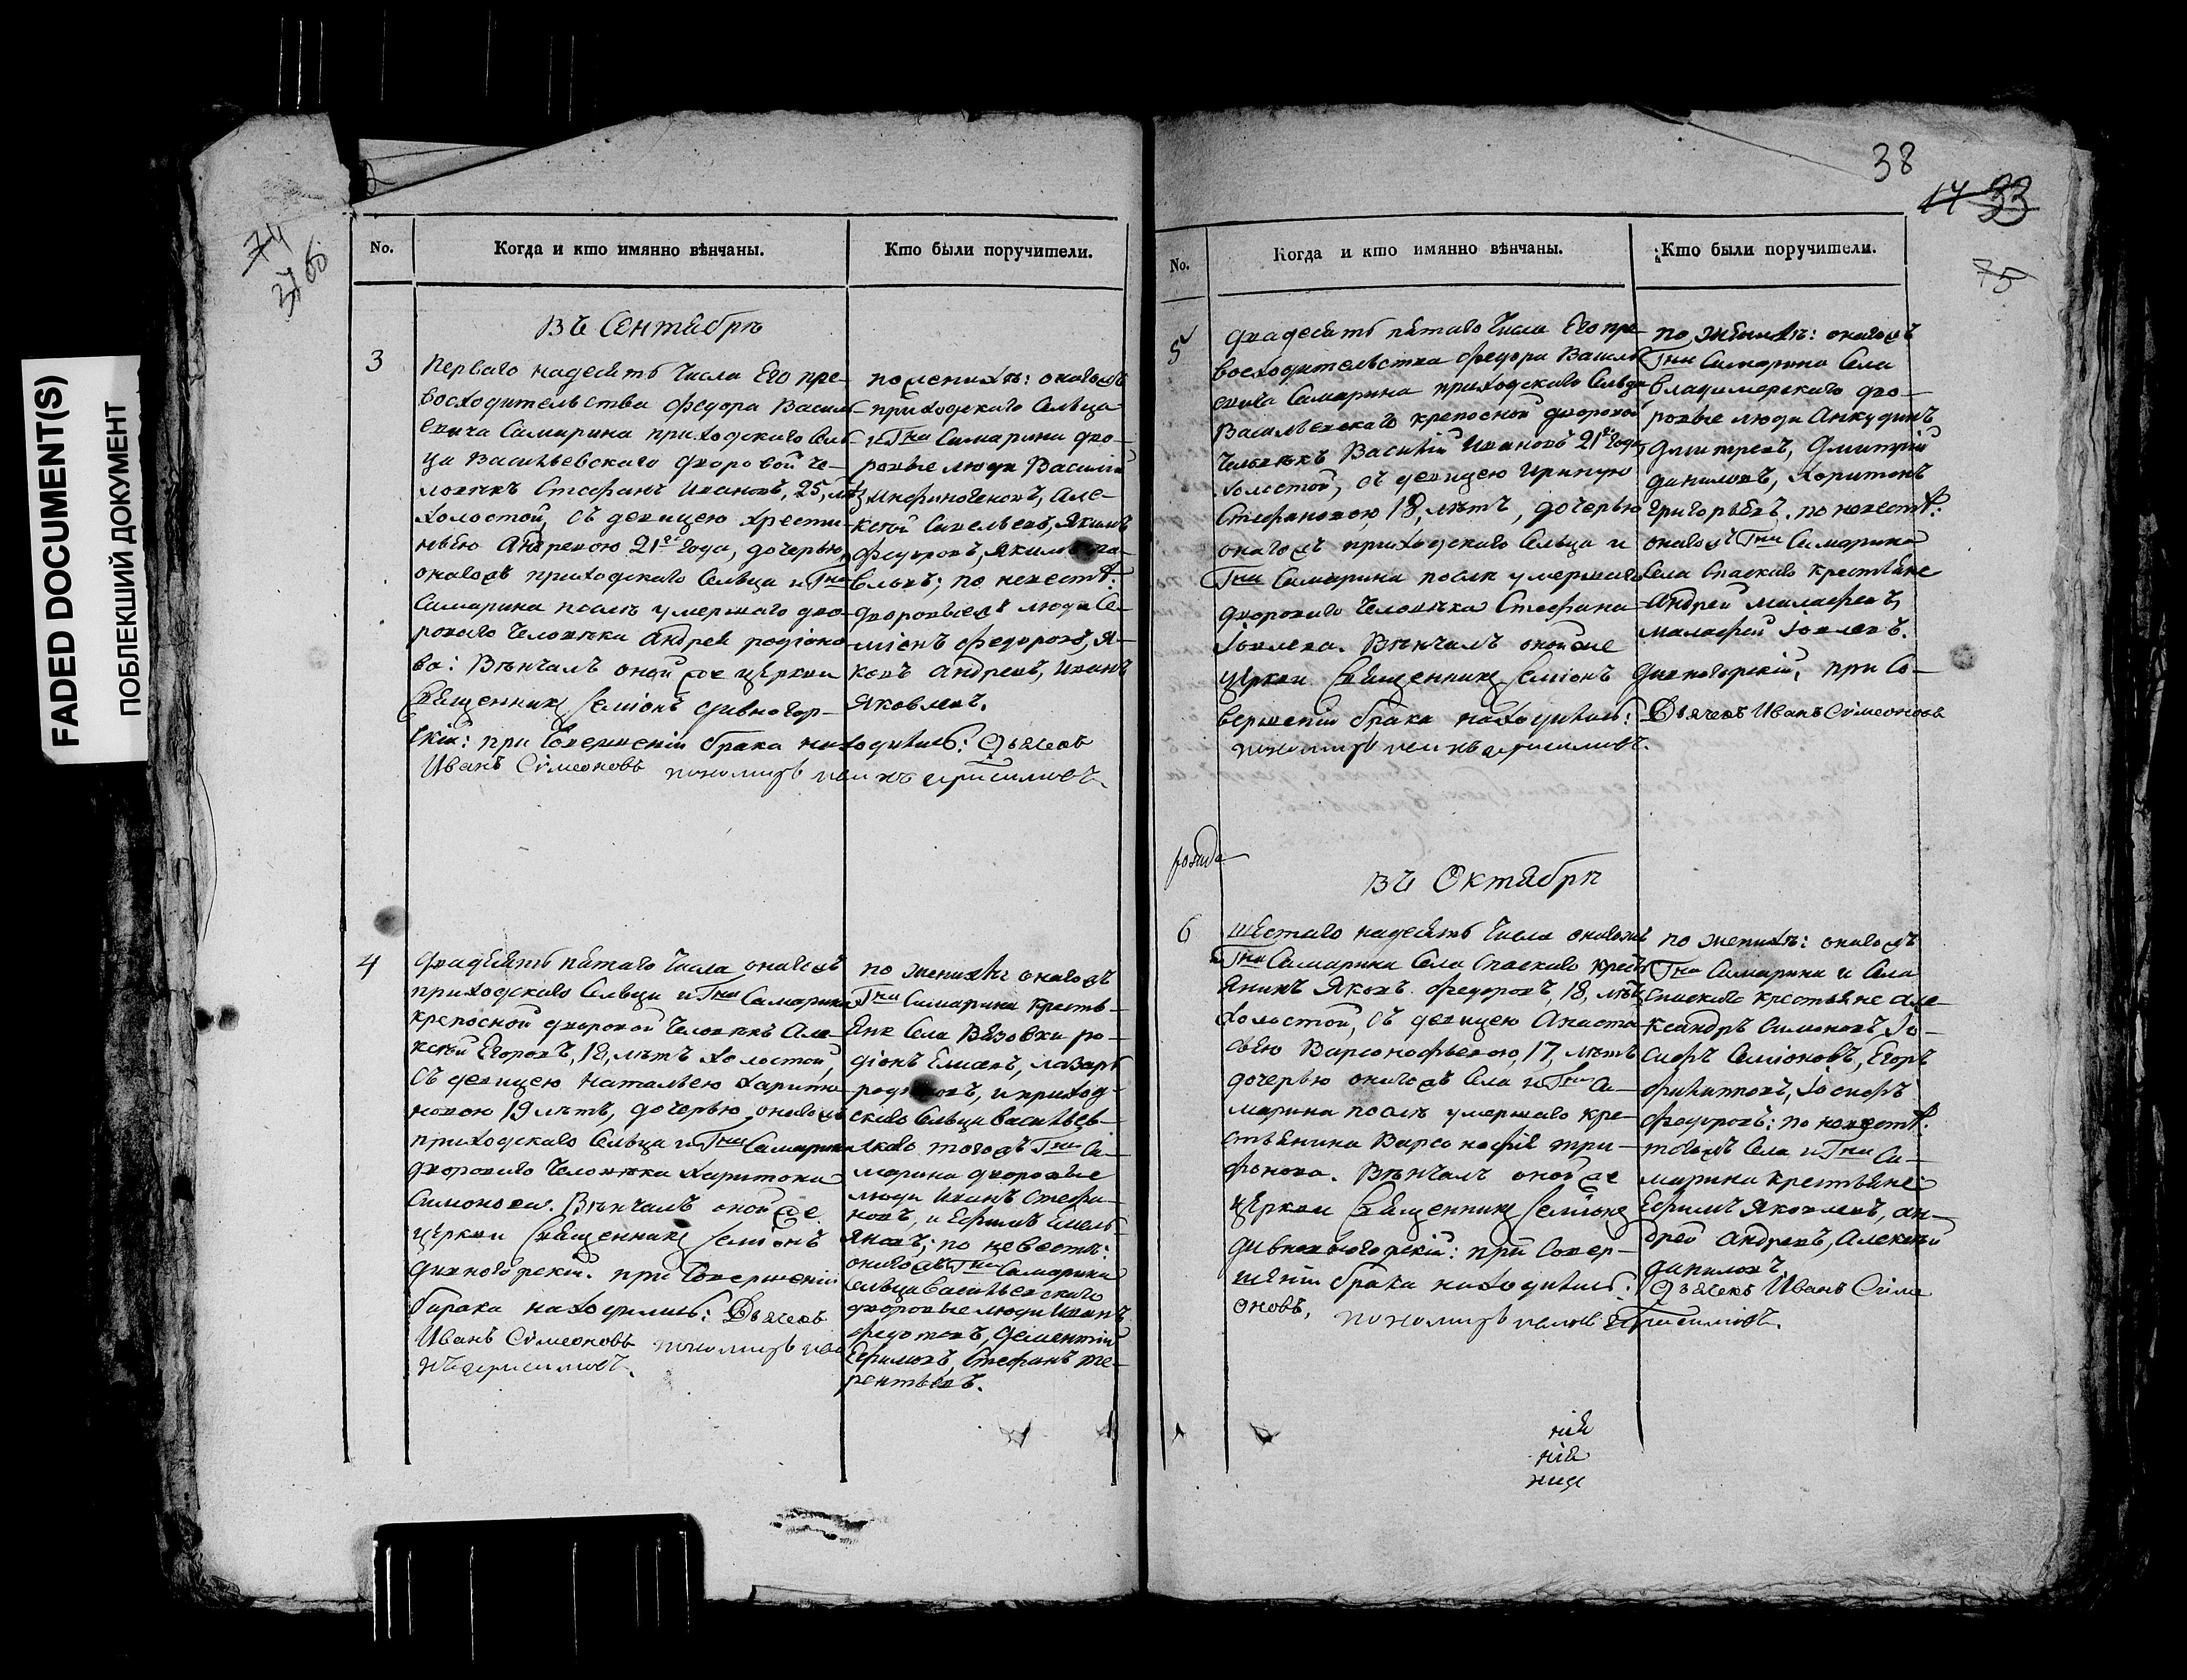 FADED DOCUMENT(S)
ПОБЛЕКШИЙ ДОКУМЕНТ
74
No.
Когда и кто имянно вѣнчаны.
Кто были поручители.
Въ Сентябрѣ
3
Перваго надесять Числа Его пре-
восходительства Федора Василь-
евича Самарина приходскаго Сель-
ца Васильевскаго дворовой че-
ловѣкъ Стефанъ Ивановъ, 25, лѣтъ
холостой, съ девицею Хрести-
ньею Андреевою 21го года, дочерью
онагожъ приходскаго Сельца и Гна
Самарина послѣ умершаго дво-
роваго Человѣка Андрея родіоно-
ва: Вѣнчалъ оной же церкви
Священникъ Семіонъ дивногор-
скій: при Совершеніи брака находились: Дьячекъ
Иванъ Сѵмеоновъ пономарь
по женихѣ: онагожъ
приходскаго Сельца
и Гна Самарина дво-
ровые люди Василій
Анфиногеновъ, Але-
ксѣй Савельевъ, Якимъ
Федоровъ,
по невестѣ:
дворовыежъ люди Се-
міонъ Федоровъ, Я-
ковъ Андреевъ, Иванъ
Яковлевъ.
4
Двадесять пятаго Числа онагожъ
приходскаго Сельца и Гна Самарина
крепосной дворовой Человѣкъ Але-
ксѣй Егоровъ, 18, лѣтъ холостой,
съ девицею Натальею Харито-
новою 19 лѣтъ, дочерью онагожъ
приходскаго Сельца и Гна Самарина
дворового Человѣка Харитона
Симонова. Вѣнчалъ оной же
церкви Священникъ Семіонъ
дивногорскій. при Совершеніи
барака находились: Дьячекъ
Иванъ Сѵмеоновъ пономарь
по женихѣ онагожъ
Гна Самарина кресть-
яне Села Вязовки ро-
діонъ Елисеевъ, лазарь
родіоновъ, и приход-
скаго Сельца Васильев-
скаго тогожъ Гна Са-
марина дворовые
люди Иванъ Стефа-
новъ, и Ефимъ Емель-
яновъ; по невестѣ:
онагожъ Гна Самарина
Сельца Васильевскаго
дворовые люди Иванъ
Федотовъ, Дементій
Ефимовъ, Стефанъ те-
рентьевъ.
38
33
75
No.
Когда и кто имянно вѣнчаны.
Кто были поручители.
5
двадесять пятаго Числа Его пре-
восходительства Федора Василь-
евича Самарина приходскаго Сельца
Васильевскаго крепосной дворовой
Человѣкъ Василій Ивановъ 21го года
холостой, съ девицею Ириною
Стефановою, 18, лѣтъ, дочерью
онагожъ приходскаго Сельца и
Гна Самарина послѣ умершаго
двороваго Человѣка Стефана
Іовлева. Вѣнчалъ оной же
церкви Священникъ Семіонъ дивногорскій, при Со-
вершеніи брака находились: Дьячекъ Иванъ Сѵмеоновъ
пономарь
по женихѣ: онагожъ
Гна Самарина Села
Владимерскаго дво-
ровые люди Анкудинъ
Дмитревъ, Дмитрій
даниловъ, Харитонъ
Григорьевъ. по невестѣ:
онагожъ Гна Самарина
Села Спаскаго крестьяне
Андрей малафеевъ,
малафей Іовлевъ.
Въ Октябрѣ
6
шестаго надесять Числа онагожъ
Гна Самарина Села Спаскаго крестья-
янинъ Яковъ Федоровъ, 18, лѣтъ
холостой, съ девицею Анаста-
сьею Варсонофьевою, 17, лѣтъ
дочерью онагожъ Села и Гна Са-
марина послѣ умершаго кре-
стьянина Варсонофия три-
фонова. Вѣнчалъ оной же
церкви Священникъ Семіонъ
дивногорскій: при Совер-
шеніи брака находились: Дьячекъ Иванъ Сѵме
оновъ, пономарь
по женихѣ: онагожъ
Гна Самарина и Села
Спаскаго крестьяне Але-
ксандръ Симоновъ, Іо-
сифъ Семіоновъ, Егоръ
филиповъ, Іосифъ
Федоровъ: по невестѣ:
тогожъ Села и Гна Са-
марина крестьяне
Ефимъ Яковлевъ, Ан-
дрей Андреевъ, Алексѣй
даниловъ.
нія
нія